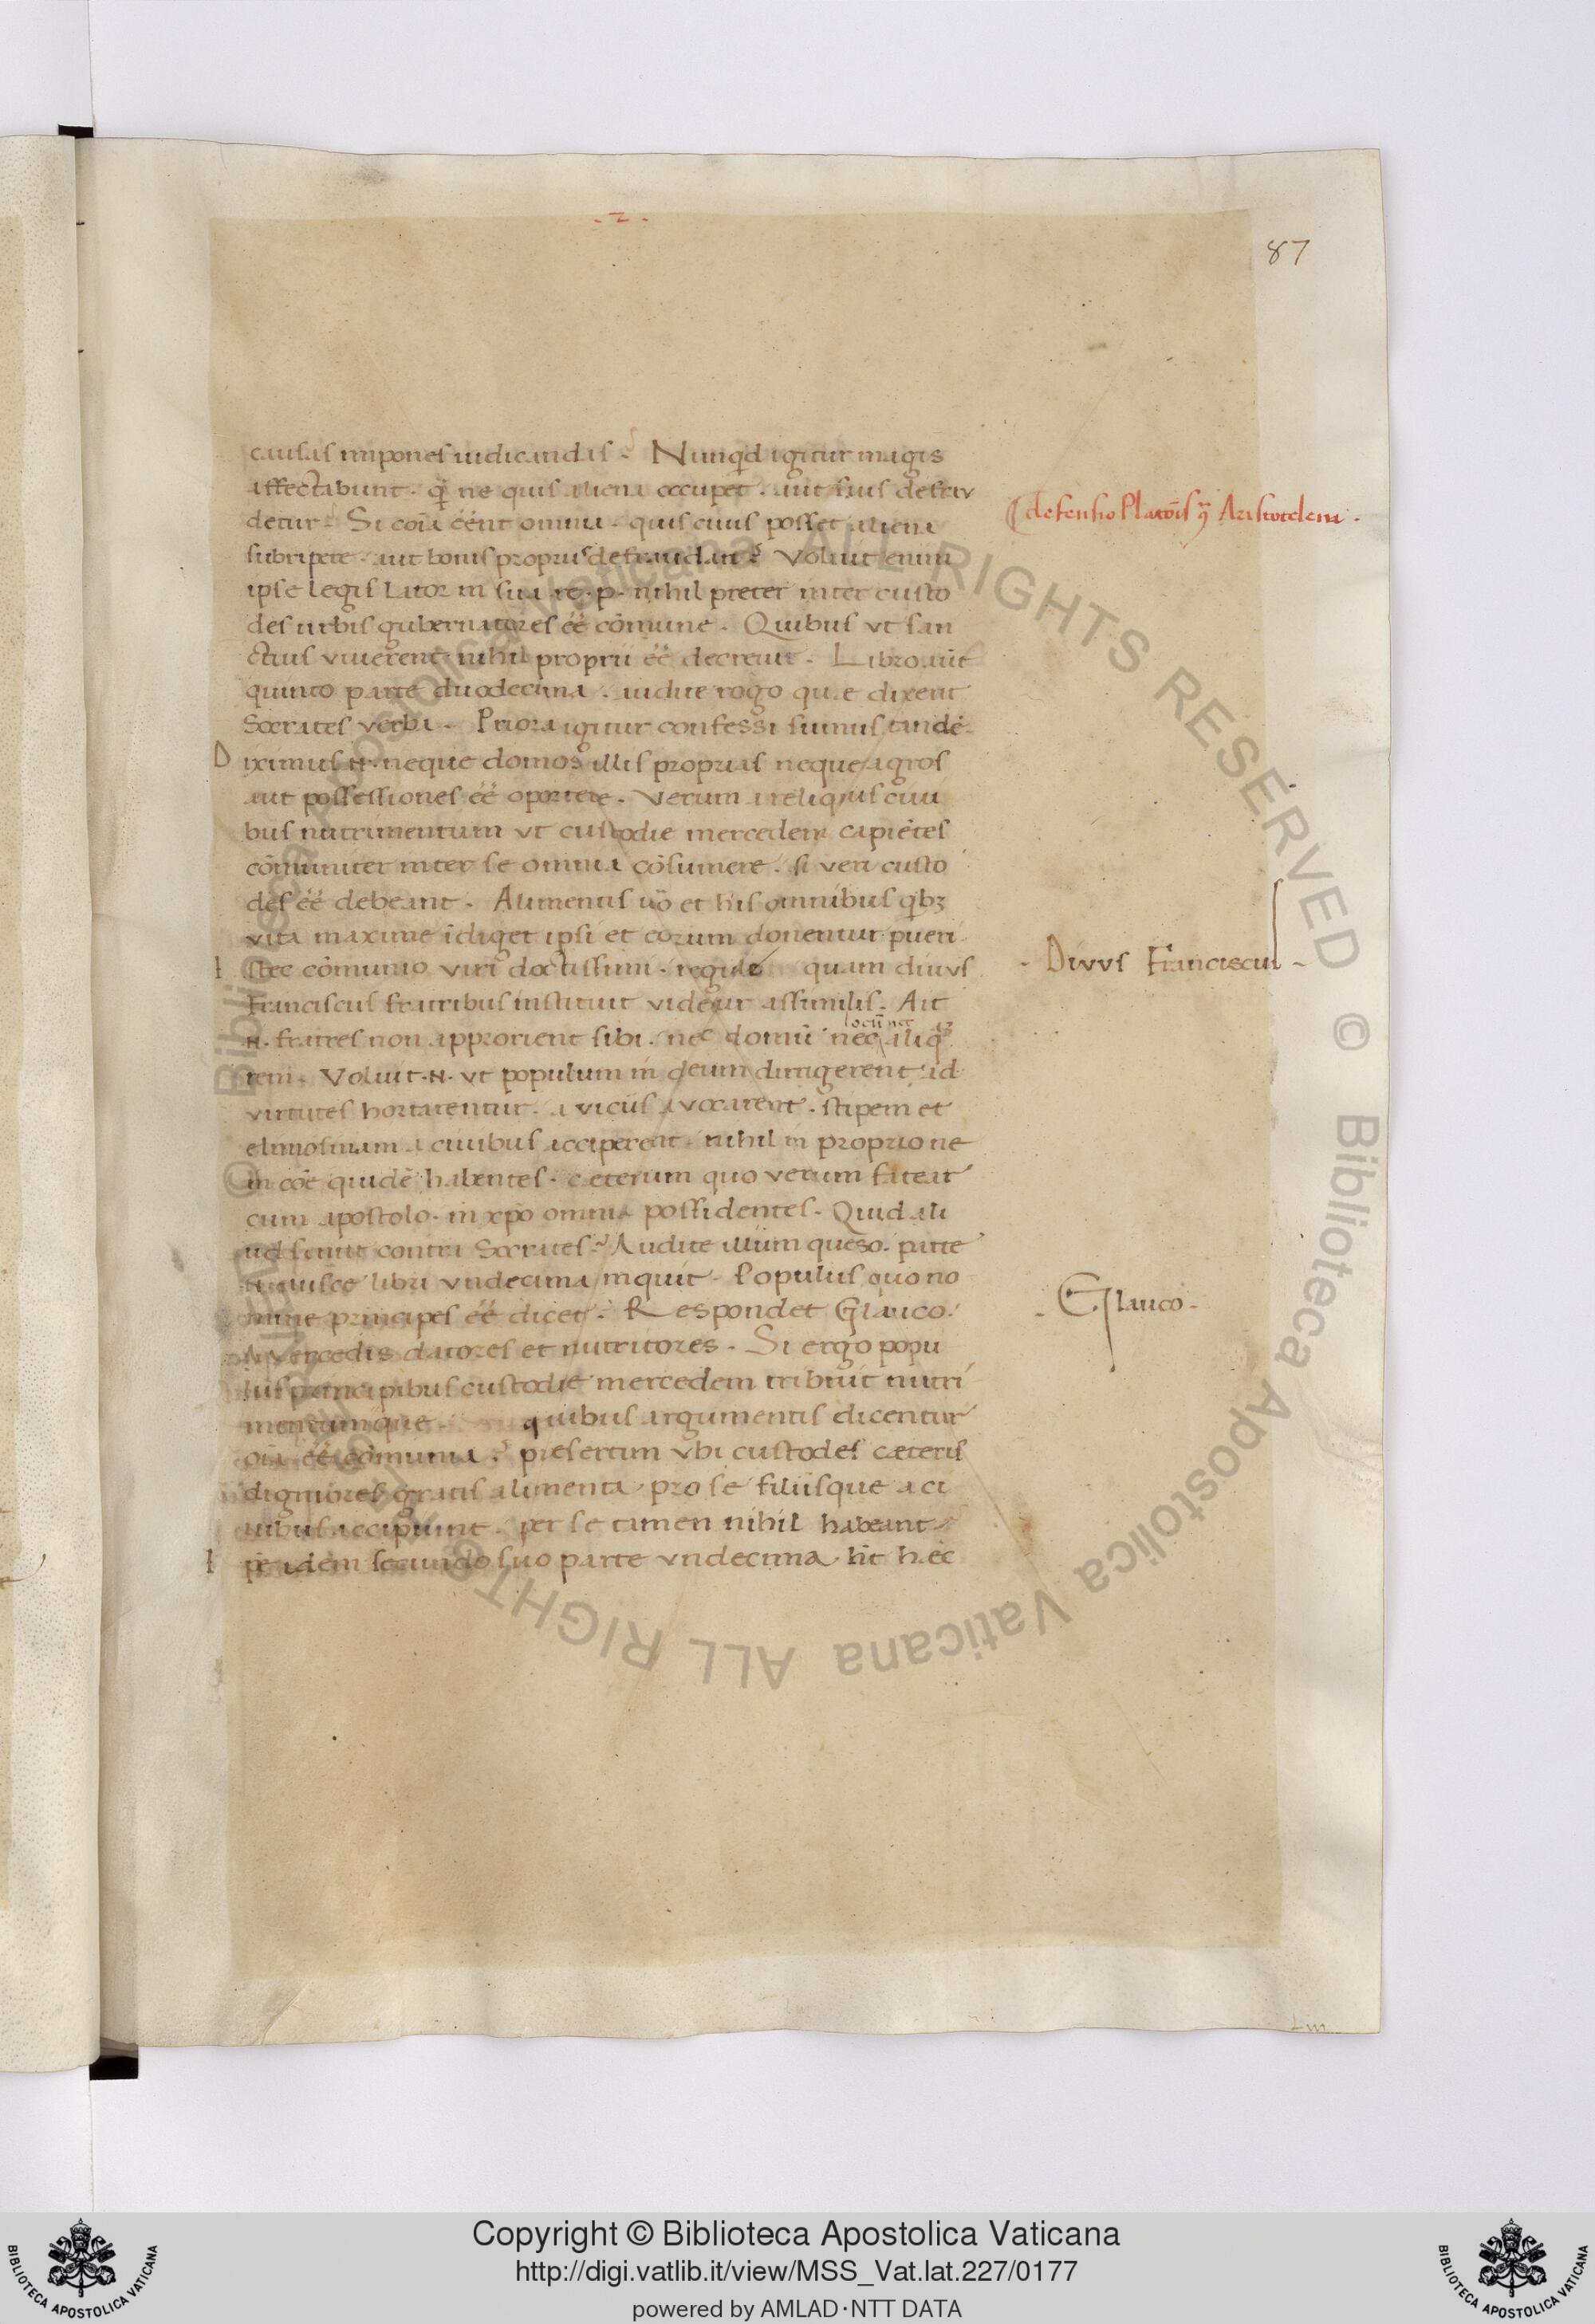 - 2 -
87
causas impones iudicandas? Nunqͥd igitur magis
affectabunt. qͣ ne quis aliena occupet. aut suis defrau
detur? Si coīa eēnt omnia. quis cuius posset aliena
subripere. aut bonis propriis defraudari? Voluit enim
ipse legis lator in sua re. p. nihil preter inter custo
des urbis gubernatores eē cōmune. Quibus vt san
ctius viuerent nihil proprii eē decreuit. Libro aūt
quinto parte duodecima. audite rogo quae dixerit
Socrates verba. Priora igitur confessi sumus tandē.
Diximus .N. neque domos illis proprias neque agros
aut possessiones eē oportere. Verum a reliquis ciui
bus nutrimentum vt custodie mercedem capiētes
cōmuniter inter se omnia cōsumere. si veri custo
des eē debeant. Alimentis uō et his omnibus qͥbꝫ
vita maxime īdiget ipsi et eorum donentur pueri.
Istec cōmunio viri doctissimi. regule quam diuus
Franciscus fratribus instituit videtur assimilis. Ait
.N. fratres non approrient sibi. nec domū nec locū nec aliqͣꝫ
rem. Voluit .N. vt populum in deum dirigerent ad
virtutes hortarentur. a viciis auocarent. stipem et
elimosinam a ciuibus acciperent. nihil in proprio ne
in coē quidē habentes. caeterum quo verum fatear
cum apostolo. in xp̄o omnia possidentes. Quid ali
ud sentit contra Socrates? Audite illum queso. parte
eiusce libri vndecima inquit. Populus quo no
mine principes eē dicet? Respondet Glauco.
Mercedis datores et nutritores. Si ergo popu
lus principibus custodie mercedem tribuit nutri
mentumque. quibus argumentis dicentur
oīa eē cōmunia? presertim vbi custodes caeteris
digniores gratis alimenta pro se filiisque a ci
uibus accipiunt. per se tamen nihil habeant
Ipē idem secundo suo parte vndecima. sīt haec
defensio Platōis ꝯ Aristotelem.
- Divvs Franciscus -
- Glauco -
L iii
Copyright © Biblioteca Apostolica Vaticana
http://digi.vatlib.it/view/MSS_Vat.lat.227/0177
powered by AMLAD·NTT DATA
BIBLIOTECA APOSTOLICA VATICANA
BIBLIOTECA APOSTOLICA VATICANA
© Biblioteca Apostolica Vaticana ALL RIGHTS RESERVED © Biblioteca Apostolica Vaticana ALL RIGHTS RESERVED